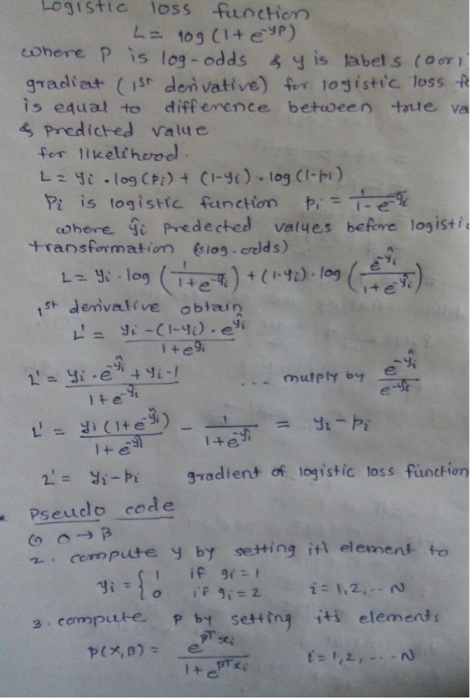 Logistic loss function
L = log(1+e^-yP)
where P is log-odds & y is labels (0 or 1
gradiat (1st derivative) for logistic loss f
is equal to difference between true va
& predicted value
for likelihood.
L = yi · log(pi) + (1-yi) · log(1-pi)
Pi is logistic function pi = 1/(1-e^-ŷi)
where ŷi Predected values before logistic
transformation (log-odds)
L = yi · log(1/(1+e^-ŷi)) + (1-yi) · log(e^-ŷi/(1+e^-ŷi))
1st derivative obtain
L' = (yi-(1-yi)·e^ŷi)/(1+e^ŷi)
L' = (yi·e^-ŷi+yi-1)/(1+e^-ŷi) ... mulply by e^-ŷi/e^-ŷi
L' = yi(1+e^-ŷi)/(1+e^-ŷi) - 1/(1+e^-ŷi) = yi-pi
L' = yi-pi gradient of logistic loss function
Pseudo code
0→β
2. compute y by setting iti element to
yi = { 1 if gi=1
0 if gi=2 i=1,2,...N
3. compute P by setting its elements
P(x,β) = e^βT xi/(1+e^βT xi) i=1,2,....N